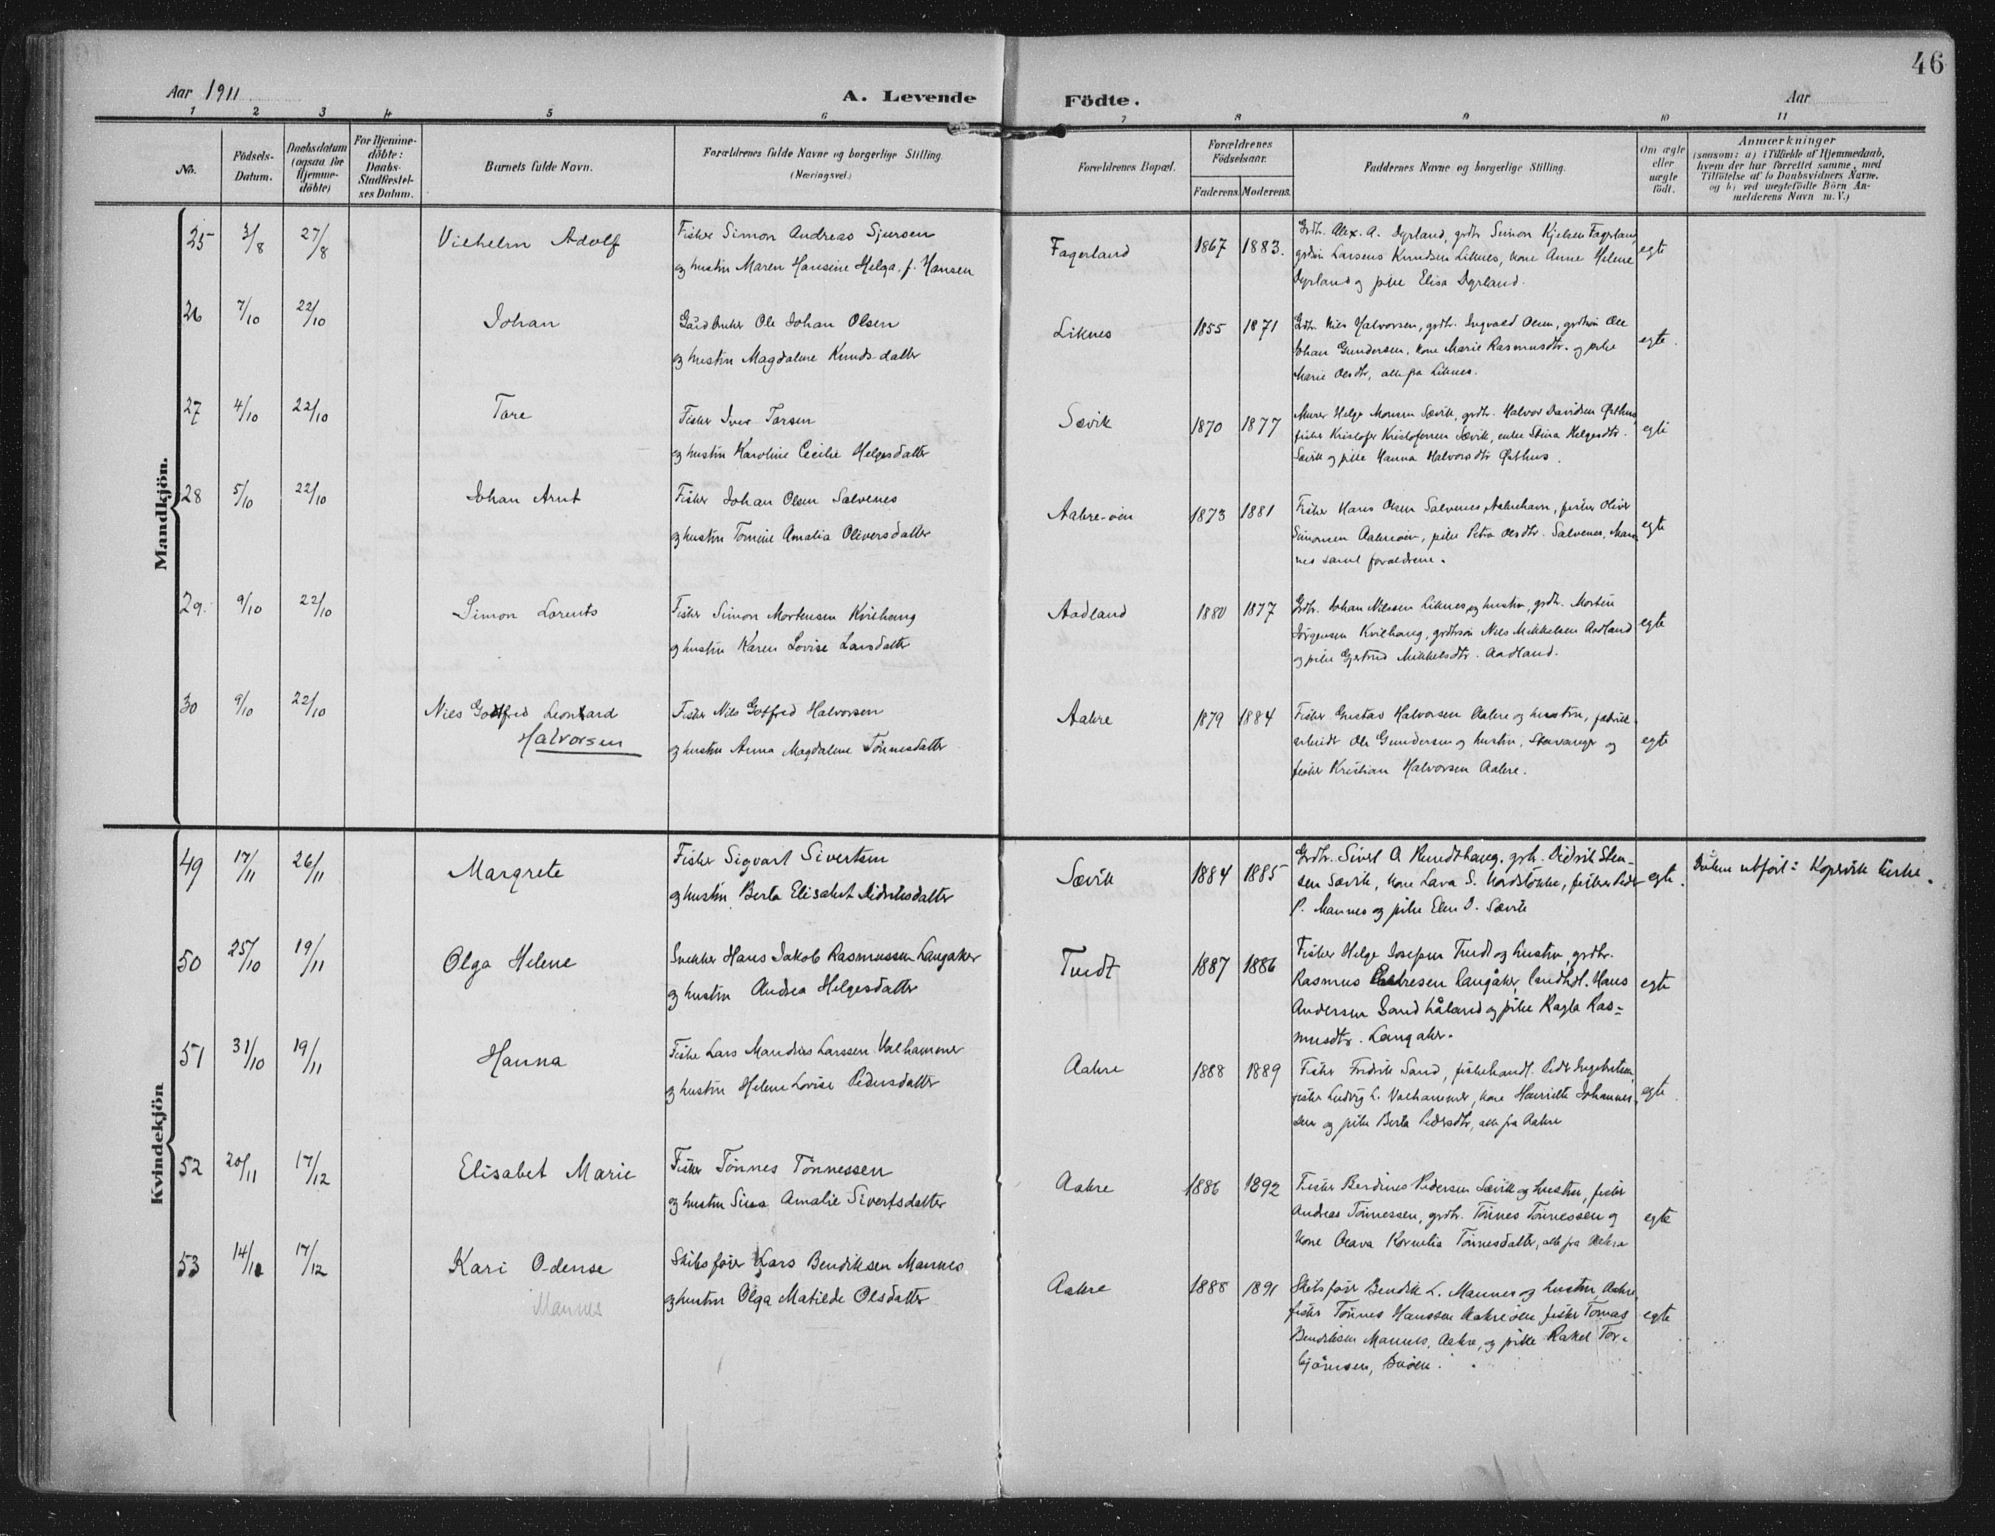 46
Aar 1911
A. Levende Födte.
Aar
1 2 3 4 5 6 7 8 9 10 11
No.
Födsels-
Datum.
Daabsdatum
(ogsaa for
Hjemme-
döbte)
For Hjemme-
döbte:
Daabs-
Stadfestel-
ses Datum.
Barnets fulde Navn.
Forældrenes fulde Navne og borgerlige Stilling
(Næringsvei.)
Forældrenes Bopæl.
Forældrenes
Födselsaar.
Faderens. Moderens.
Faddernes Navne og borgerlige Stilling.
Om ægte
eller
uægte
födt.
Anmærkninger
(saasom: a) i Tilfælde af Hjemmedaab,
hvem der har forrettet samme, med
Tilföielse af to Daabsvidners Navne,
og b) ved uegtefödte Börn An-
melderens Navn m. V.)
Mandkjön.
25 3/8 27/8 Vilhelm Adolf
Fisker Simon Andreas Sjursen
og hustru Maren Hansine Helga f. Hansen
Fagerland 1867 1883.
Grdbr. Alex. A. Dyrland, grdbr Simon Kjelsen Fagerland,
Larsens Knudsen Liknes, kone Anne Helene
Dyrland og pike Elisa Dyrland.
egte
26 7/10 22/10 Johan
Gårdbruker Ole Johan Olsen
og hustru Magdalene Knuds-datter
Liknes 1855 1871
Grdbr. Nils Halvorsen, grdbr. Ingvald Olsen, grdbrsøn Ole
Johan Gundersen, kone Marie Rasmusdtr. og pike
Marie Olsdtr, alle fra Liknes.
egte.
27 4/10 22/10 Tore
Fisker Iver Torsen
og hustru Karoline Cecilie Helgesdatter
Sævik 1870 1877
Murer Helge Monsen Sævik, grdbr. Halvor Davidsen Østhus,
fisker Kristofer Kristofersen Sævik, enke Stina Helgesdtr.
Sævik og pike Hanna Halvorsdtr Østhus.
egte
28 5/10 22/10 Johan Arnt
Fisker Johan Olsen Salvenes
og hustru Tomine Amalia Oliversdatter
Aakre-øen 1873 1881
Fisker Hans Olsen Salvenes, Aakrehavn, fisker Oliver
Simonsen Aakreøen, pike Petra Olsdtr. Salvenes, Man-
nes samt forældrene.
egte
29. 9/10 22/10 Simon Lorents
Fisker Simon Mortensen Kvilhaug
og hustru Karen Lovise Larsdatter
Aadland 1880 1877
Grdbr. Johan Nilssen Liknes og hustru, grdbr. Morten
Jørgensen Kvilhaug, grdbrsøn Nils Mikkelsen Aadland
og pike Gjertrud Mikkelsdtr. Aadland.
egte
30 9/10 22/10 Nils Gotfred Leonhard
Halvorsen
Fisker Nils Gotfred Halvorsen
og hustru Anna Magdalene Tönnesdatter
Aakre 1879 1884
Fisker Gustav Halvorsen Aakre og hustru, fabrik-
arbeidr Ole Gundersen og hustru, Stavanger og
fisker Kristian Halvorsen Aakre.
egte
Kvindekjön
49 17/11 26/11 Margrete
Fisker Sigvart Sivertsen
og hustru Berta Elisabet Didriksdatter
Sævik 1884 1885
Grdbr. Sivert A. Rundthaug, grdbr. Didrik Sten-
sen Sævik, kone Lava S. Nordstokke, fisker Peder
P. Mannes og pike Elen D. Sævik
egte.
Dåben utført i Kopervik kirke.
50 25/10 19/11 Olga Helene
Snekker Hans Jakob Rasmussen Langaker
og hustru Andrea Helgesdatter
Tuedt 1887 1886
Fisker Helge Josefsen Tuedt og hustru, grdbr.
Rasmus Langåker, landhdl. Hans
Andersen Sandhåland og pike Ragla Ras-
musdtr. Langaker.
egte
51 31/10 19/11 Hanna
Fisker Lars Mandius Larssen Valhammer
og hustru Helene Lovise Pedersdatter
Aakre 1888 1889
Fisker Fredrik Sand, fiskehandl. Peder Ingebretsen,
fisker Ludvig L. Valhammer, kone Henriette Johannes-
sen og pike Berta Pedersdtr, alle fra Aakre
egte
52 20/11 17/12 Elisabet Marie
Fisker Tönnes Tönnessen
og hustru Sina Amalie Sivertsdatter
Aakre 1886 1892
Fisker Berdines Pedersen Sævik og hustru, fisker
Andreas Tönnessen, grdbr. Tönnes Tönnessen og
kone Olava Kornelia Tönnesdatter, alle fra Aakre
egte
53 14/12 17/12 Kari Odense
Mannes
Skibsfører Lars Bendiksen Mannes
og hustru Olga Matilde Olsdatter
Aakre 1888 1891
Skibsfører Bendik L. Mannes og hustru, Aakre,
fisker Tönnes Hanssen Aakreøen, fisker Tomas
Bendiksen Mannes, Aakre, og pike Rakel Tor-
björnsen,
egte